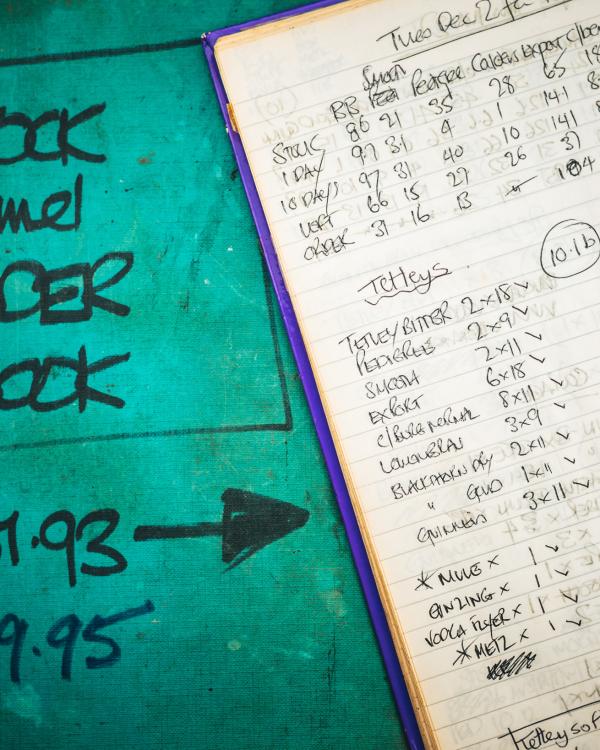 OCK
mel
DER
OCK
7.93
9.95
Tues Dec
Smooth
BB Pedigree Calders Export C/berg
STOCK 86 21 35 28 65
1 DAY 97 31 4 1 141
10 DAY 97 31 40 10 141
LEFT 66 15 27 26 37
ORDER 31 16 13 104
10.1b
Tetleys
TETLEY BITTER 2x18 ✓
PEDIGREE 2x9 ✓
SMOOTH 2x11 ✓
EXPORT 6x18 ✓
C/BERG NORMAL 8x11 ✓
LOWENBRAU 3x9 ✓
BLACKTHORN DRY 2x11 ✓
" GOLD 1x11 ✓
GUINNESS 3x11 ✓
* MULE x 1 ✓
GINZING x 1 ✓
VODKA x 1 ✓
* METZ x 1 ✓
Tetley sof